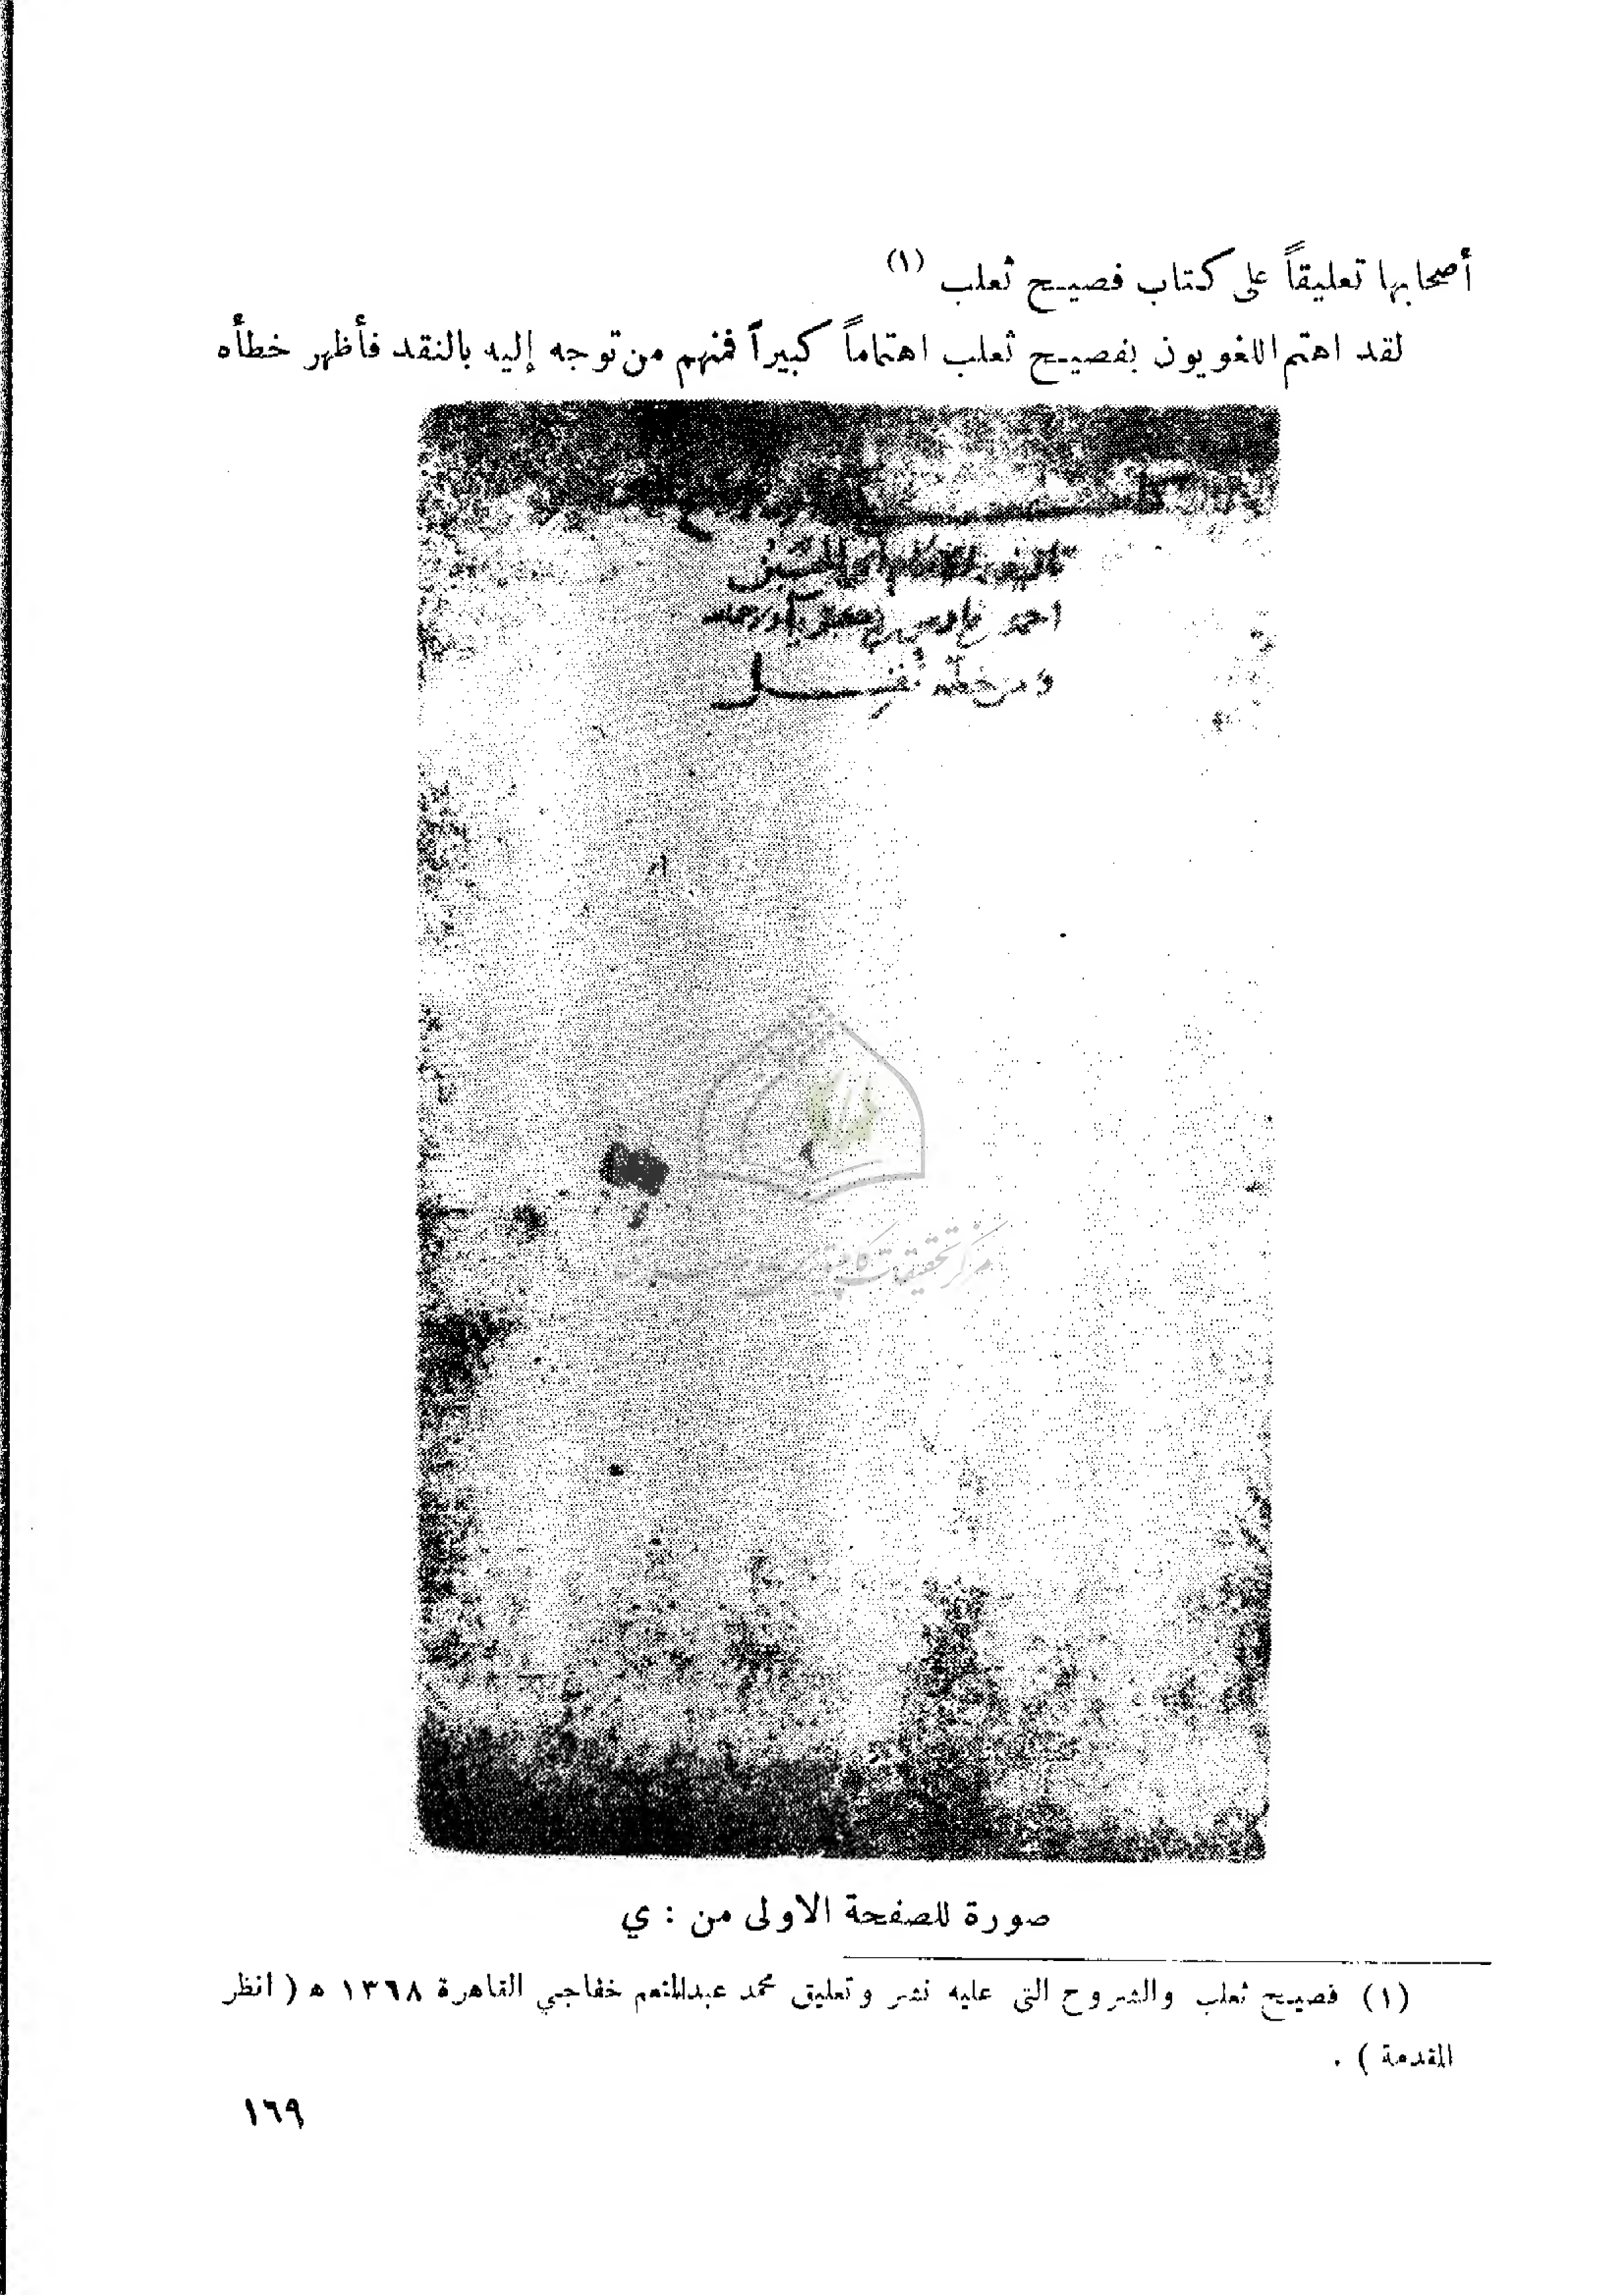 أصحابها تعليقاً على كتاب فصيح ثعلب (١)
لقد اهتم اللغويون بفصيح ثعلب اهتماماً كبيراً فمنهم من توجه إليه بالنقد فأظهر خطأه
تاليف
احمد بن فارس بن
ومن خطه نقل
صورة للصفحة الاولى من : ي
(١) فصيح ثعلب والشروح التي عليه نشر وتعليق محمد عبدالمنعم خفاجي القاهرة ١٣٦٨ ه ( انظر
المقدمة ) .
١٦٩